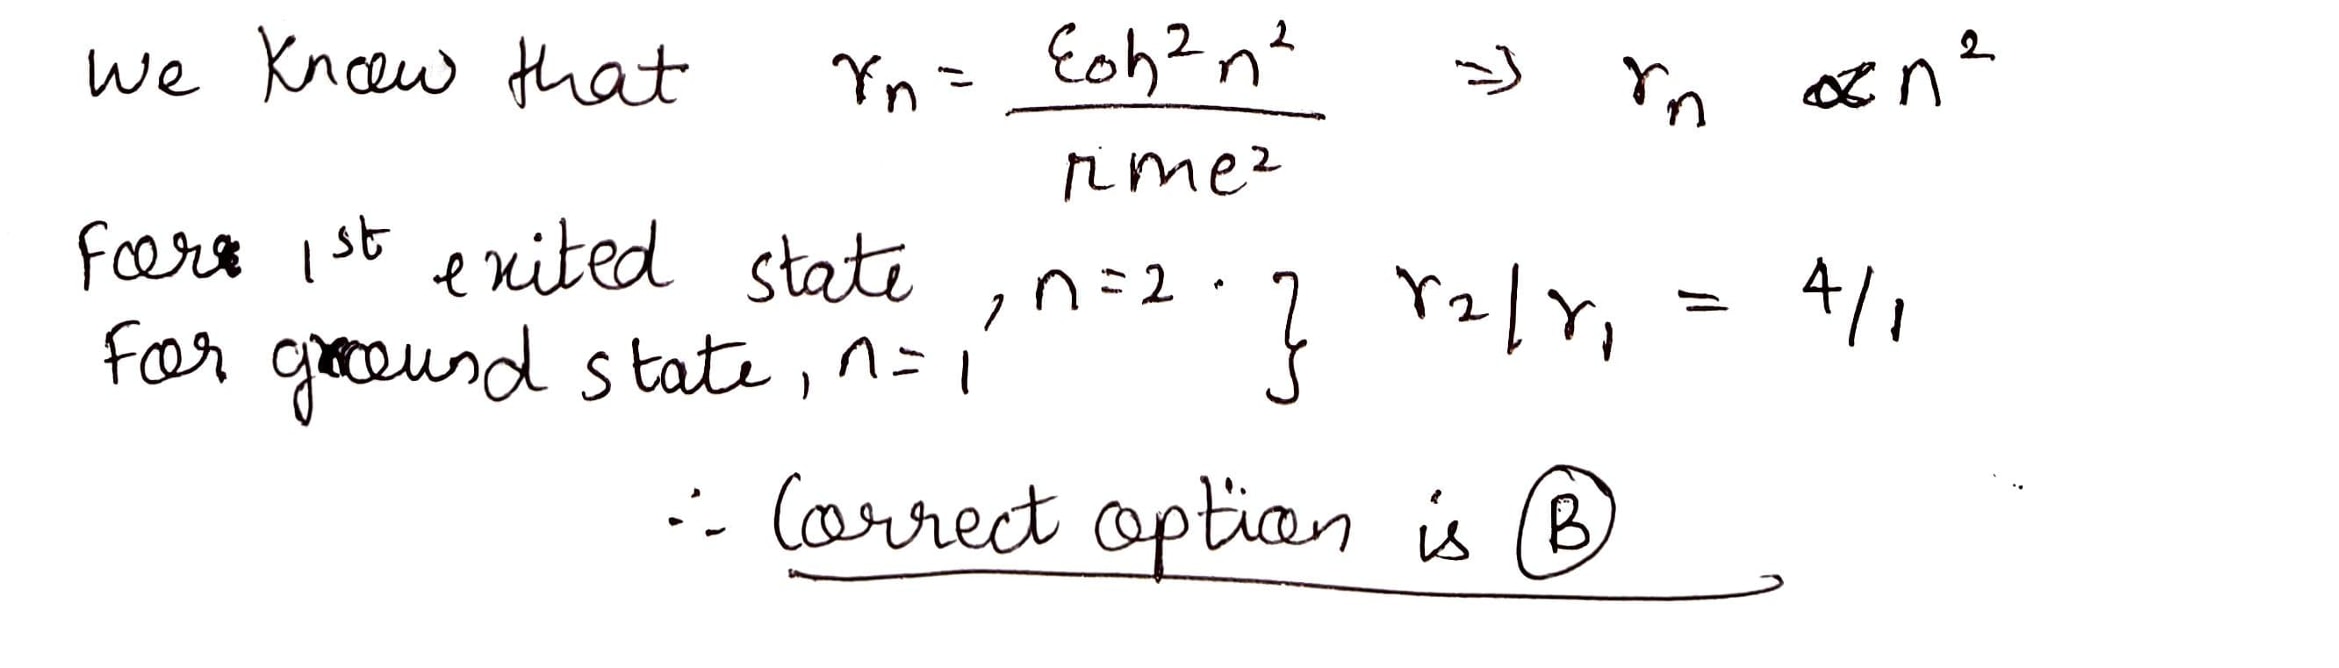 We Know that rn = ε0h²n² / πme² => rn ∝ n²
For 1st exited state, n=2. } r2/r1 = 4/1
For ground state, n=1
∴ Correct option is B